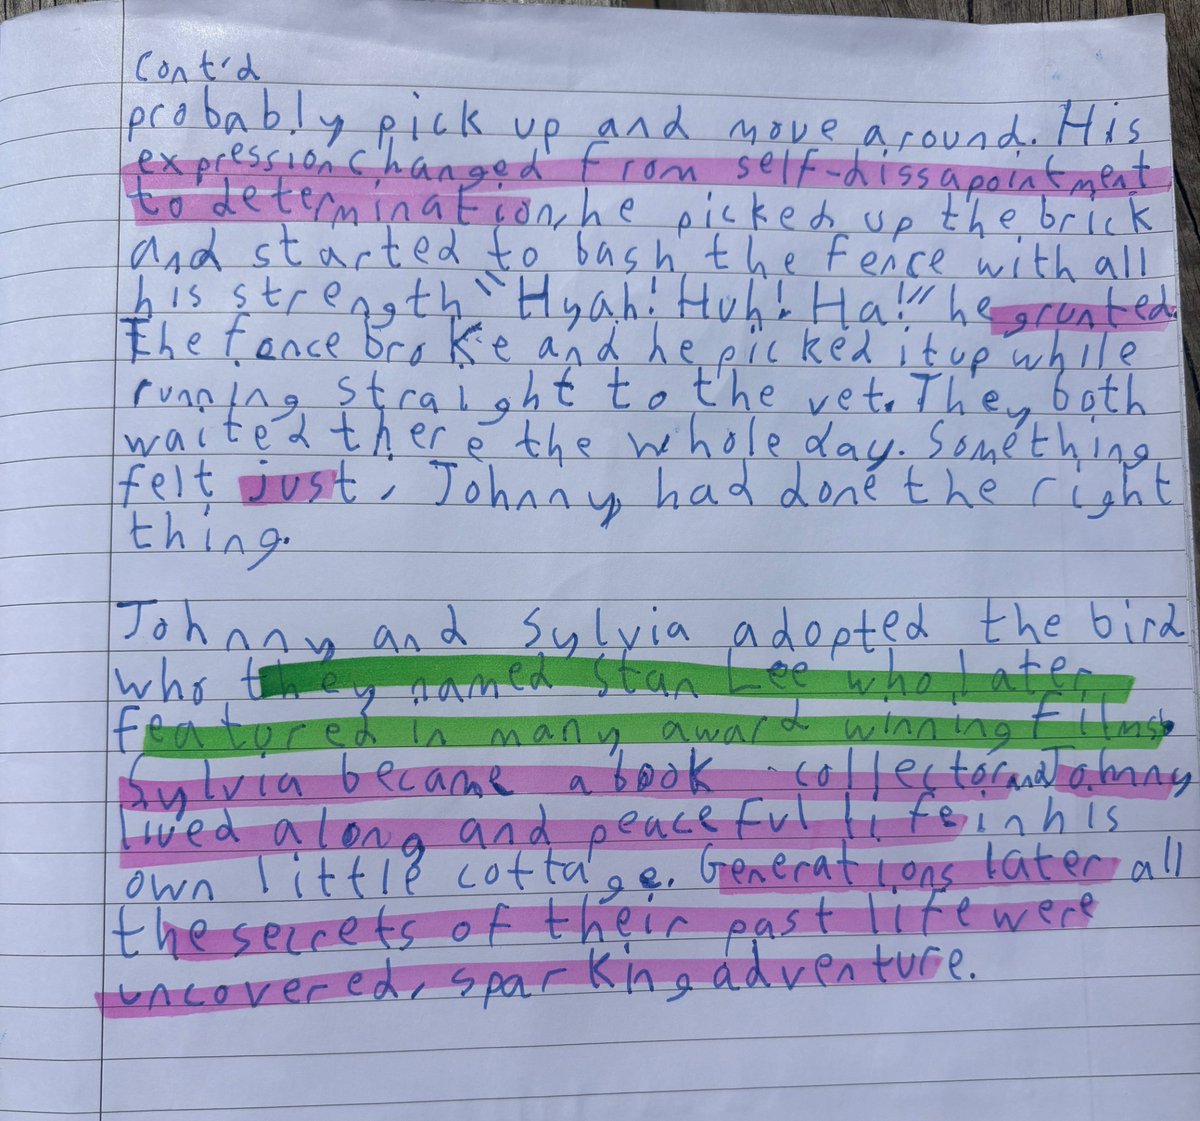 Cont'd
probably pick up and move around. His
expression changed from self-dissapointment
to determination, he picked up the brick
and started to bash the fence with all
his strength "Hyah! Huh! Ha!" he grunted.
The fence broke and he picked it up while
running straight to the vet. They both
waited there the whole day. Something
felt just, Johnny had done the right
thing.
Johnny and Sylvia adopted the bird
who they named Stan Lee who later
featured in many award winning films.
Sylvia became a book collector and Johnny
lived a long and peaceful life in his
own little cottage. Generations later all
the secrets of their past life were
uncovered, sparking adventure.